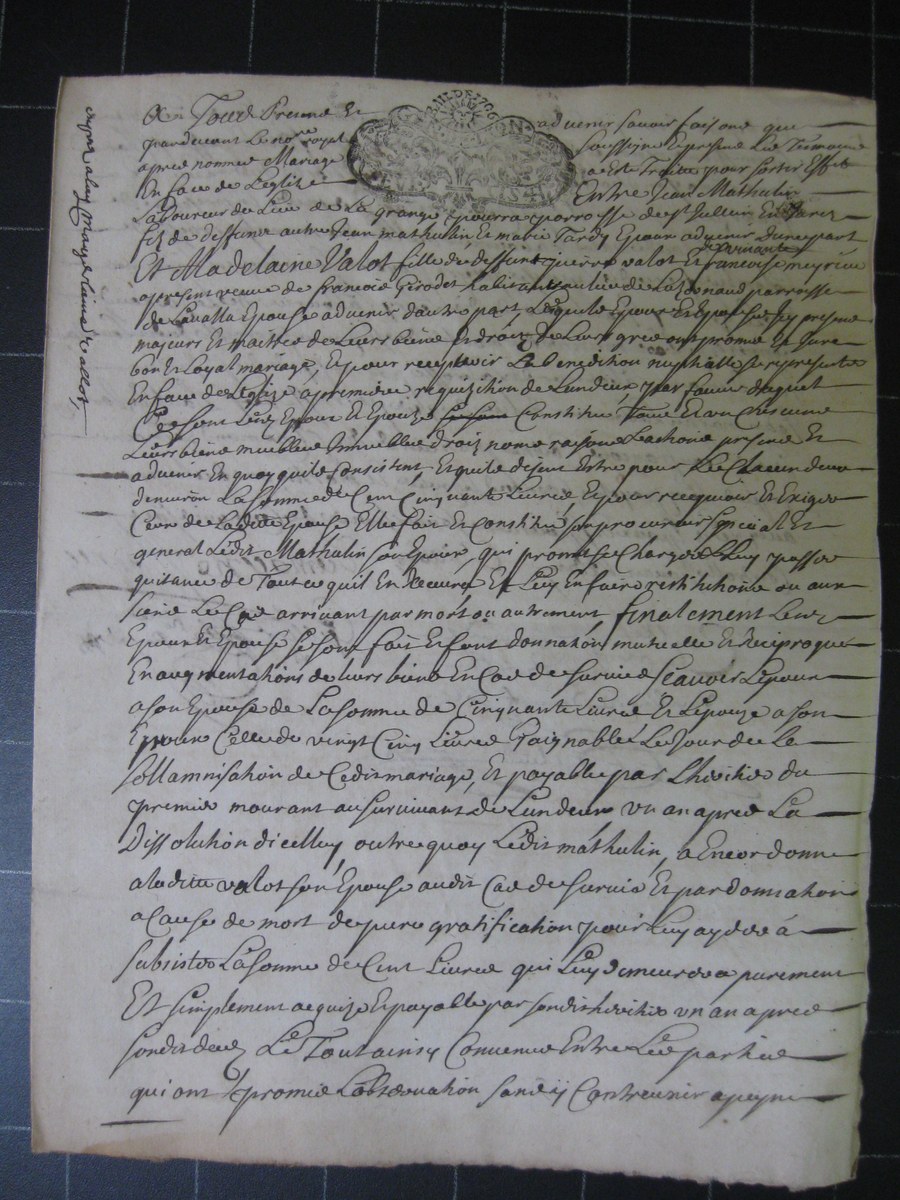 A Tous Presens Et advenir savoir faisons que
pardevant Le no.re royal soussigne Et presens Les Tesmoins
apres nommes Mariage a Esté Traitté pour sortir Effet
En face de Leglize Entre Jean Mathulin
Laboureur du Lieu de La grange parroisse de St Jullien
fils de deffunt autre Jean mathulin, Et marie Tardy Epoux advenir dune part
Et Madelaine Valot fille de deffunt pierre valot Et francoise meyrieu vivante
apresent veuve de francois Girodet habitant au lieu de parroisse
de Lavalla Epouse advenir dautre part Lesquels Epoux Et Epouse
majeurs Et maitres de Leurs biens Et droits de Leurs grés ont promis Et Juré
bon Et Loyal mariage, Et pour recepvoir La benediction nuptialle se representer
En face de Leglize a premiere requizition de Lun deux, par faveur duquel
Ce sont Lesd Epoux Et Epouze Constitué Tous Et un Chescuns
Leurs biens meubles Immeubles droits noms raisons Et actions presens Et
advenir En quoy quils Consistent, Et quils disent Estre pour Chacun deux
denviron La somme de Cent Cinquante Livres Et pour recepvoir Et Exiger
Ceux de Laditte Epouse Elle fait Et Constitué son procureur special Et
general Ledit Mathulin son Epoux, qui promet se Charger Et Luy passer
quitance de Tout ce quil En Recevra Et Luy En faire restitutions ou aux
siens Le Cas arrivant par mort ou autrement finalement Lesd
Epoux Et Epouse se sont fait Et font donnation mutuelle Et Reciproque
En augmentations de leurs biens En Cas de survie Scauoir Lepoux
a son Epouse de La somme de Cinquante Livres Et Lepouze a son
Epoux Celle de vingt Cinq Livres Gaignables Le Jour de Le
sollamnisation de Cedit mariage, Et payable par Lheritier du
premier mourant au survivant de Lun deux un an apres La
Dissolution dicelluy, outre quoy Ledit mathulin, a Encor donne
a laditte valot son Epouse audit Cas de survie Et par donnation
a Cause de mort de pure gratification pour Luy ayder á
subsister La somme de Cent Livres qui Luy demeurera purement
Et simplement acquize Et payable par sondit heritier un an apres
sondit deces Le Tout ainsy Convenu Entre Les parties
qui ont promis Lobservation sans y Contrevenir a peyne
madelaine vallot,